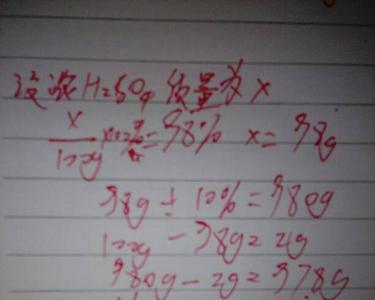 设浓H2SO4质量为x
x/100g ×100%=98% x=98g
98g ÷ 10%=980g
100g - 98g=2g
980g-2g=978g